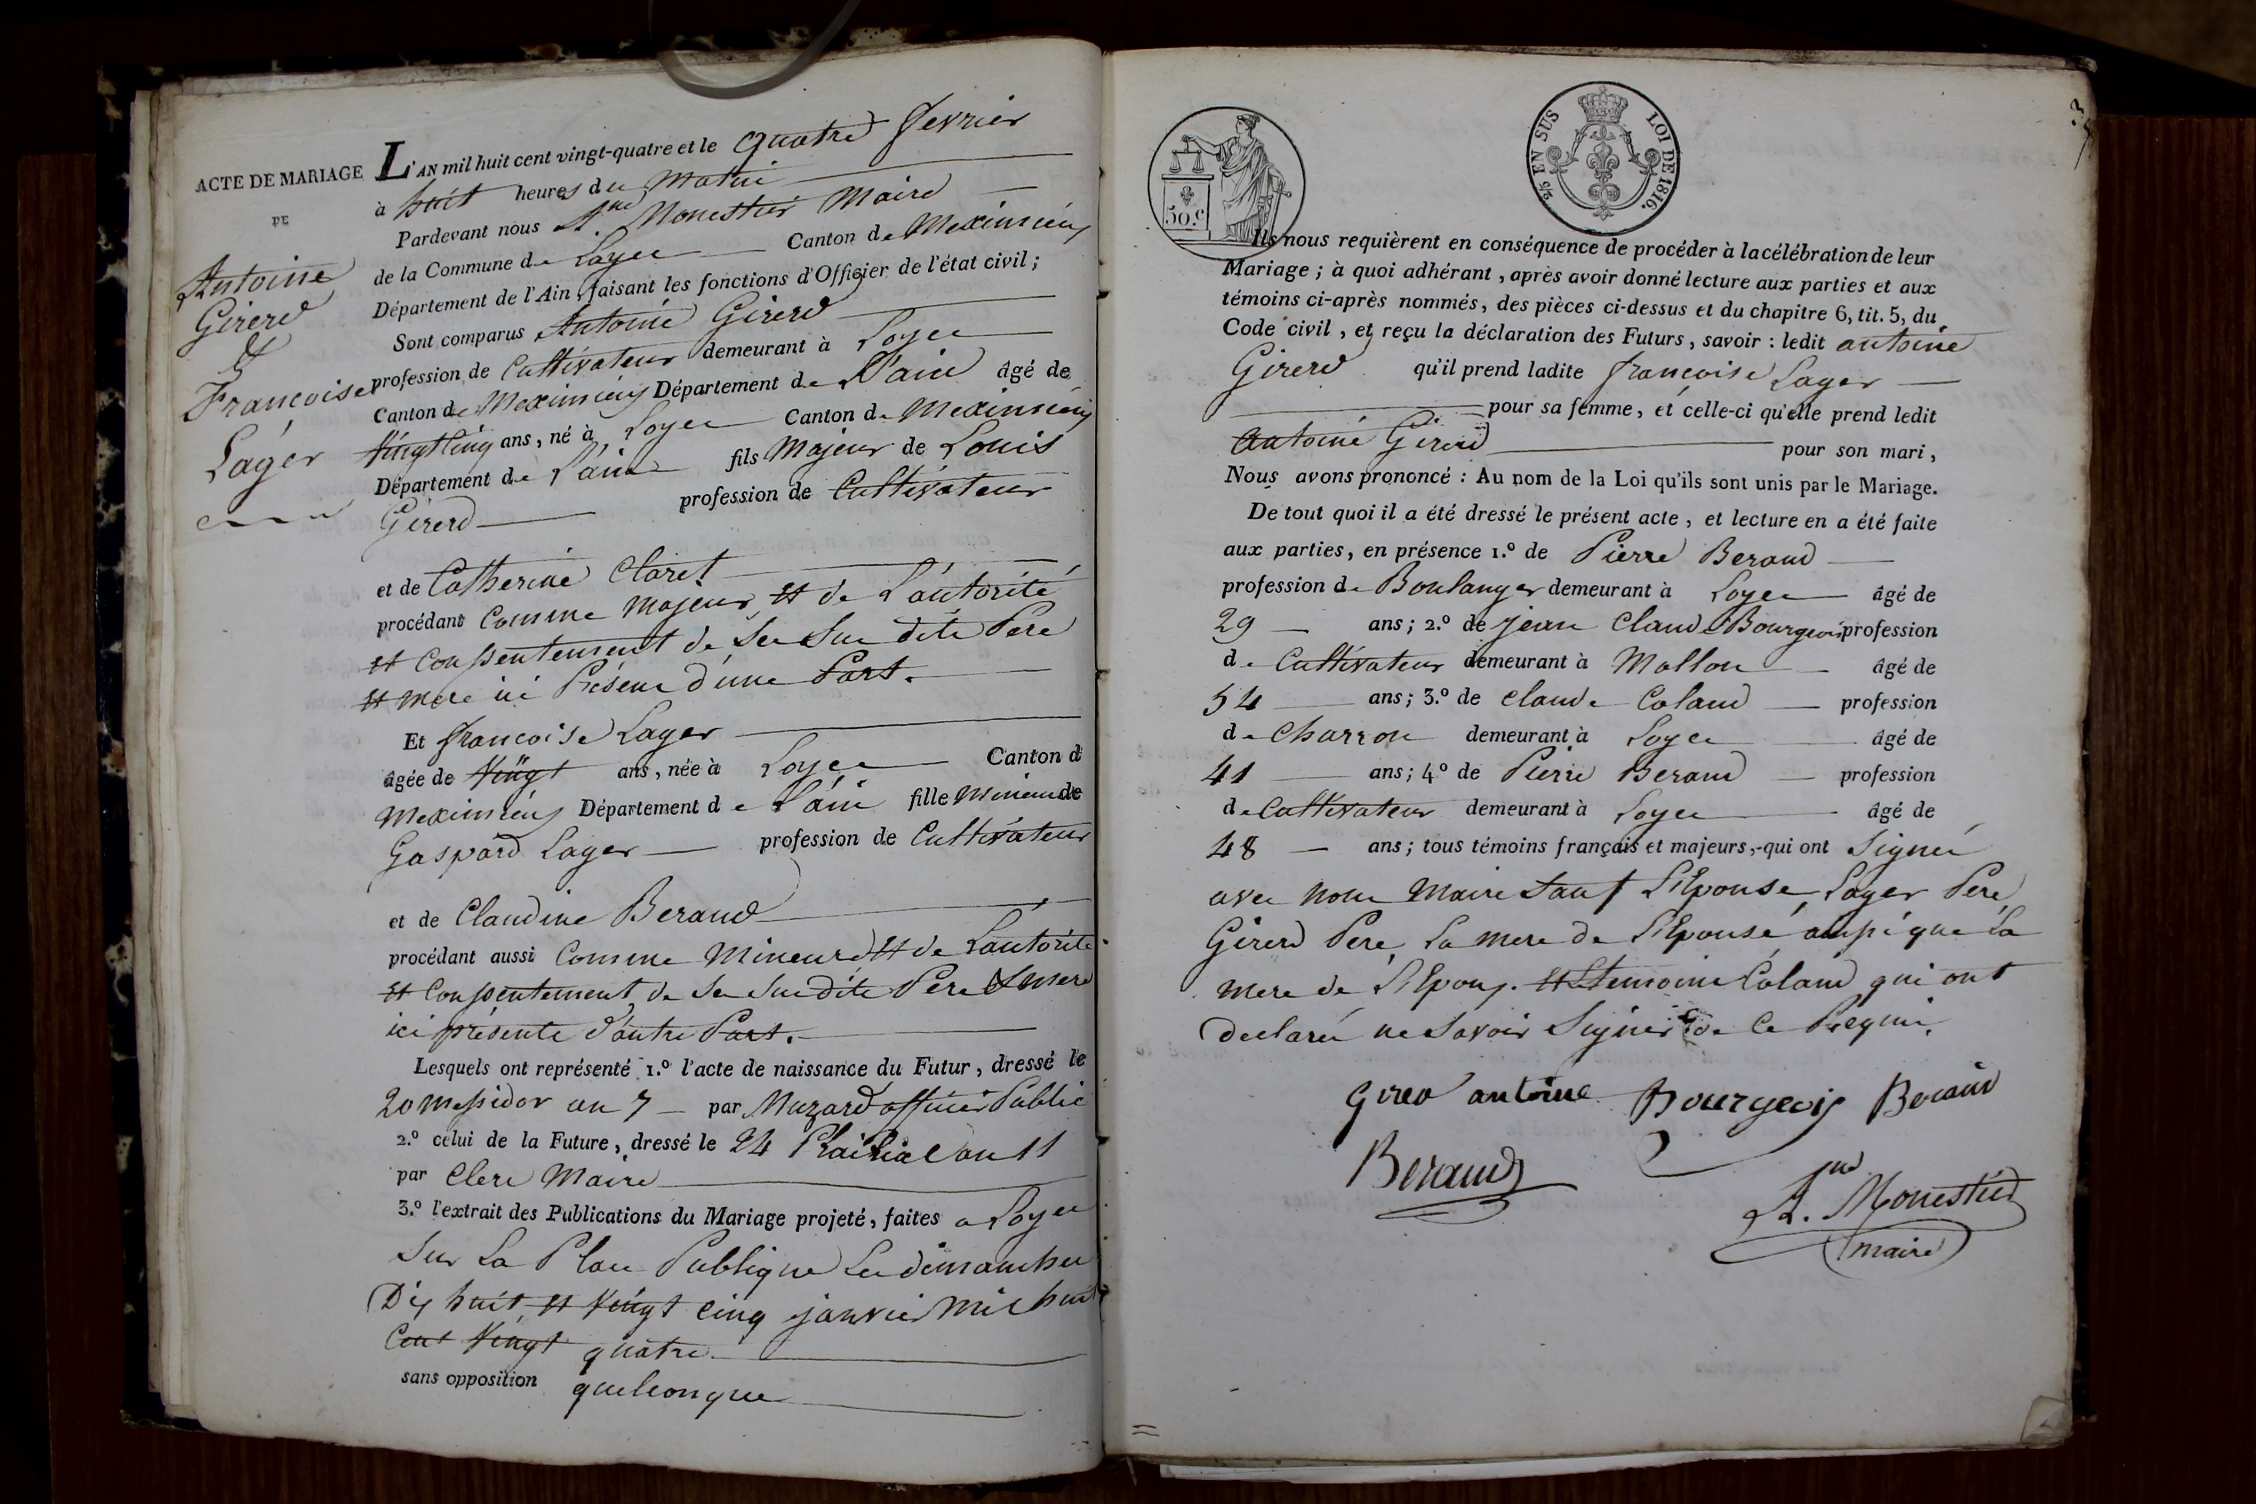 ACTE DE MARIAGE
DE
Antoine
Girerd
&
Françoise
Lager
L'AN mil huit cent vingt-quatre et le quatre fevrier
à huit heures du Matin
Pardevant nous A.ne Monestier Maire
de la Commune de Loyes Canton de Meximieux
Département de l'Ain, faisant les fonctions d'Officier de l'état civil ;
Sont comparus Antoine Girerd
profession de Cultivateur demeurant à Loyes
Canton de Meximieux Département de L'ain âgé de
Vingt cinq ans, né à Loyes Canton de Meximieux
Département de L'ain fils Majeur de Louis
Girerd profession de Cultivateur
et de Catherine Claret
procédant Comme majeur et de L'autorité
et Consentement de Ses Sus dits Pere
et mere ici Présens d'une Part.
Et françoise Lager
âgée de Vingt ans, née à Loyes Canton d
Meximieux Département de L'ain fille Mineure de
Gaspard Lager profession de Cultivateur
et de Claudine Beraud
procédant aussi Comme Mineure et de L'autorité
et Consentement de Ses Susdits Pere & Mere
ici présents d'autre Part.
Lesquels ont représenté 1.º l'acte de naissance du Futur, dressé le
20 messidor an 7 par Muzard officier Public
2.º celui de la Future, dressé le 24 Prairial an 11
par Clerc Maire
3.º l'extrait des Publications du Mariage projeté, faites a Loyes
Sur La Place Publique Les dimanches
Dix huit et Vingt cinq janvier mil huit
Cent Vingt quatre
sans opposition quelconque
50.c
2/5 EN SUS LOI DE 1816.
3
Ils nous requièrent en conséquence de procéder à la célébration de leur
Mariage ; à quoi adhérant, après avoir donné lecture aux parties et aux
témoins ci-après nommés, des pièces ci-dessus et du chapitre 6, tit. 5, du
Code civil, et reçu la déclaration des Futurs, savoir : ledit antoine
Girerd qu'il prend ladite françoise Lager
pour sa femme, et celle-ci qu'elle prend ledit
antoine Girerd pour son mari,
Nous avons prononcé : Au nom de la Loi qu'ils sont unis par le Mariage.
De tout quoi il a été dressé le présent acte, et lecture en a été faite
aux parties, en présence 1.º de Pierre Beraud
profession de Boulanger demeurant à Loyes âgé de
29 ans ; 2.º de jean Claude Bourgeois profession
de Cultivateur demeurant à Mollon âgé de
54 ans ; 3.º de Claude Coland profession
de Charron demeurant à Loyes âgé de
41 ans ; 4.º de Pierre Beraud profession
de Cultivateur demeurant à Loyes âgé de
48 ans ; tous témoins français et majeurs, qui ont Signés
avec nous Maire Sauf L'Epouse, Lager Pere,
Girerd Pere, La mere de L'Epouse ainsi que La
mere de L'Epoux. et Le temoins Coland qui ont
declarés ne Savoir Signer de Ce Requis.
Girerd antoine Bourgeois Beraud
Beraud
A.ne Monestier
maire